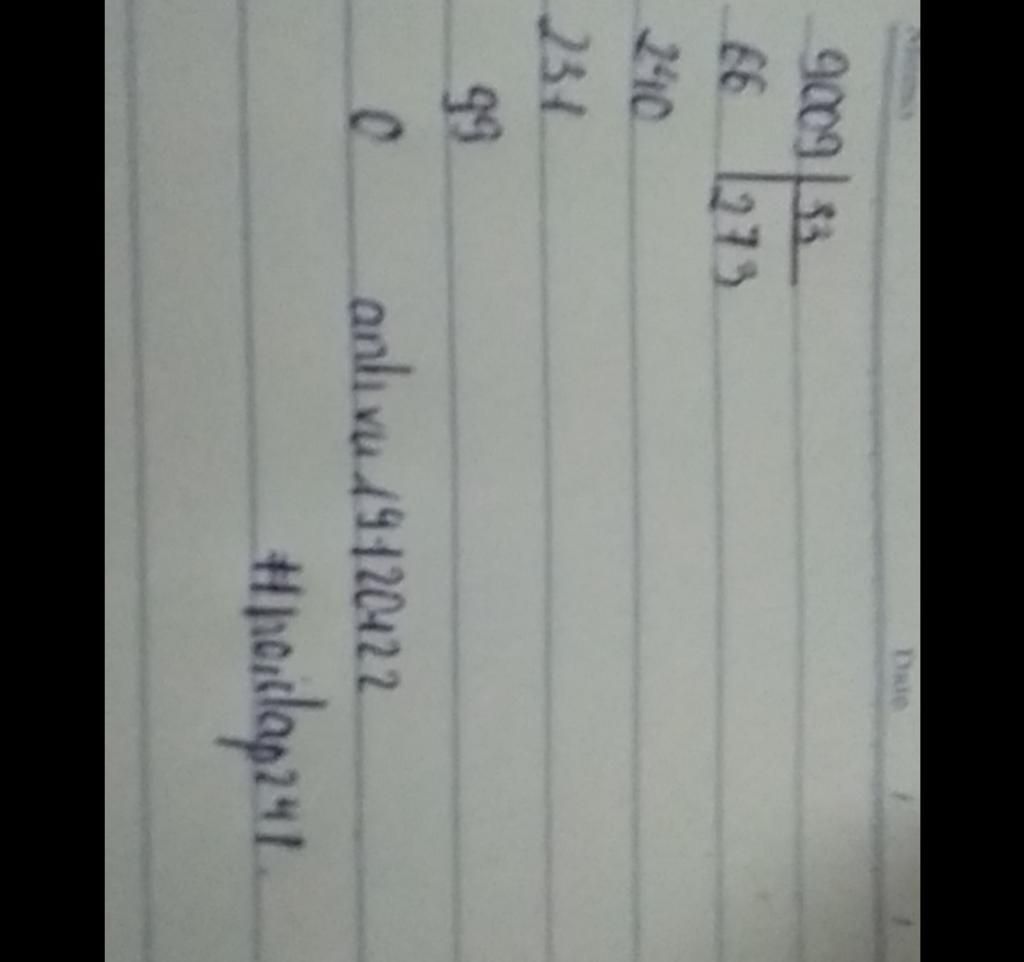 Date / /
9009 | 33
66 | 273
240
231
99
0
anhvu19120422
#hoidap247.